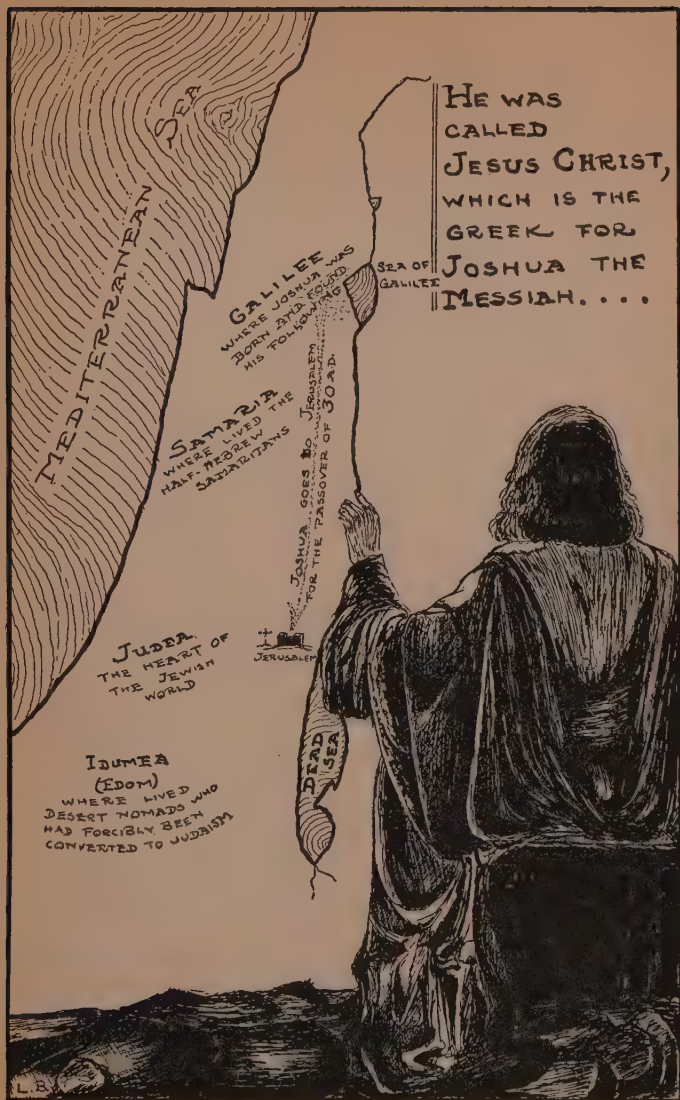 HE WAS
CALLED
JESUS CHRIST,
WHICH IS THE
GREEK FOR
JOSHUA THE
MESSIAH....
MEDITERRANEAN SEA
GALILEE
WHERE JOSHUA WAS
BORN AND FOUND
HIS FOLLOWING
SEA OF
GALILEE
SAMARIA
WHERE LIVED THE
HALF-HEBREW
SAMARITANS
JOSHUA GOES TO JERUSALEM
FOR THE PASSOVER OF 30 A.D.
JERUSALEM
JUDEA
THE HEART OF
THE JEWISH
WORLD
DEAD
SEA
IDUMEA
(EDOM)
WHERE LIVED
DESERT NOMADS WHO
HAD FORCIBLY BEEN
CONVERTED TO JUDAISM